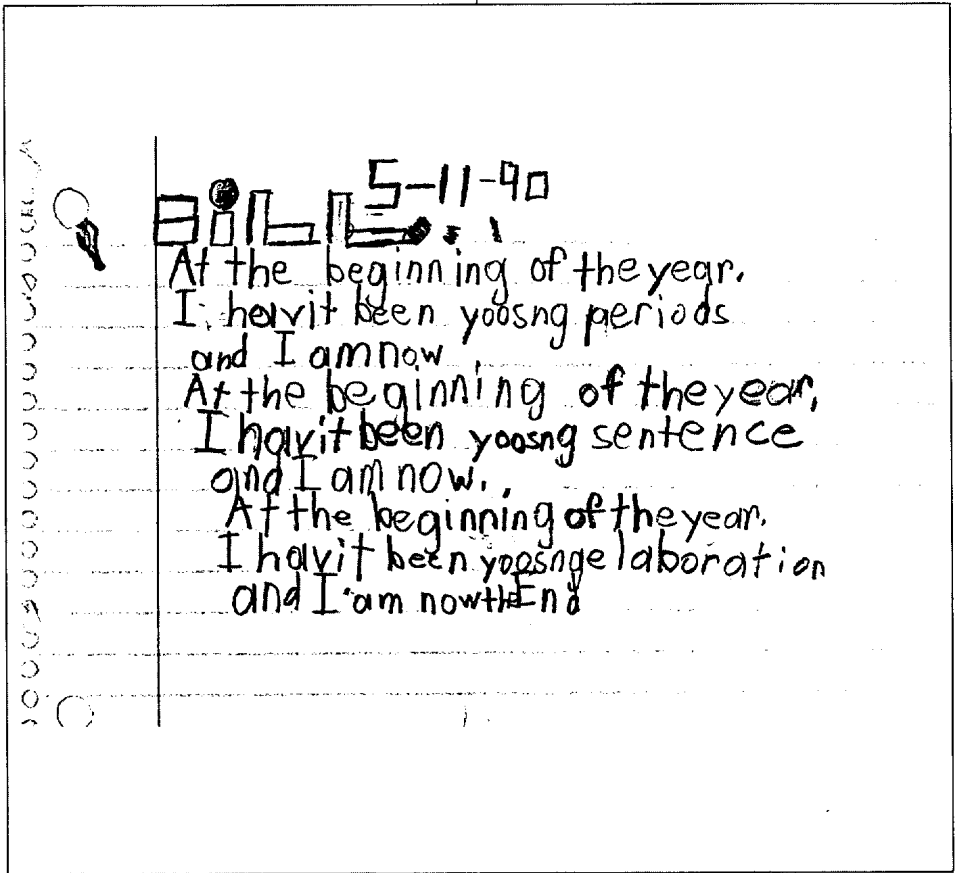 BiLL 5-11-90
At the beginning of the year.
I havit been yoosng periods
and I am now.
At the beginning of the year,
I havit been yoosng sentence
and I am now..
At the beginning of the year.
I havit been yoosng elaboration
and I am now the End